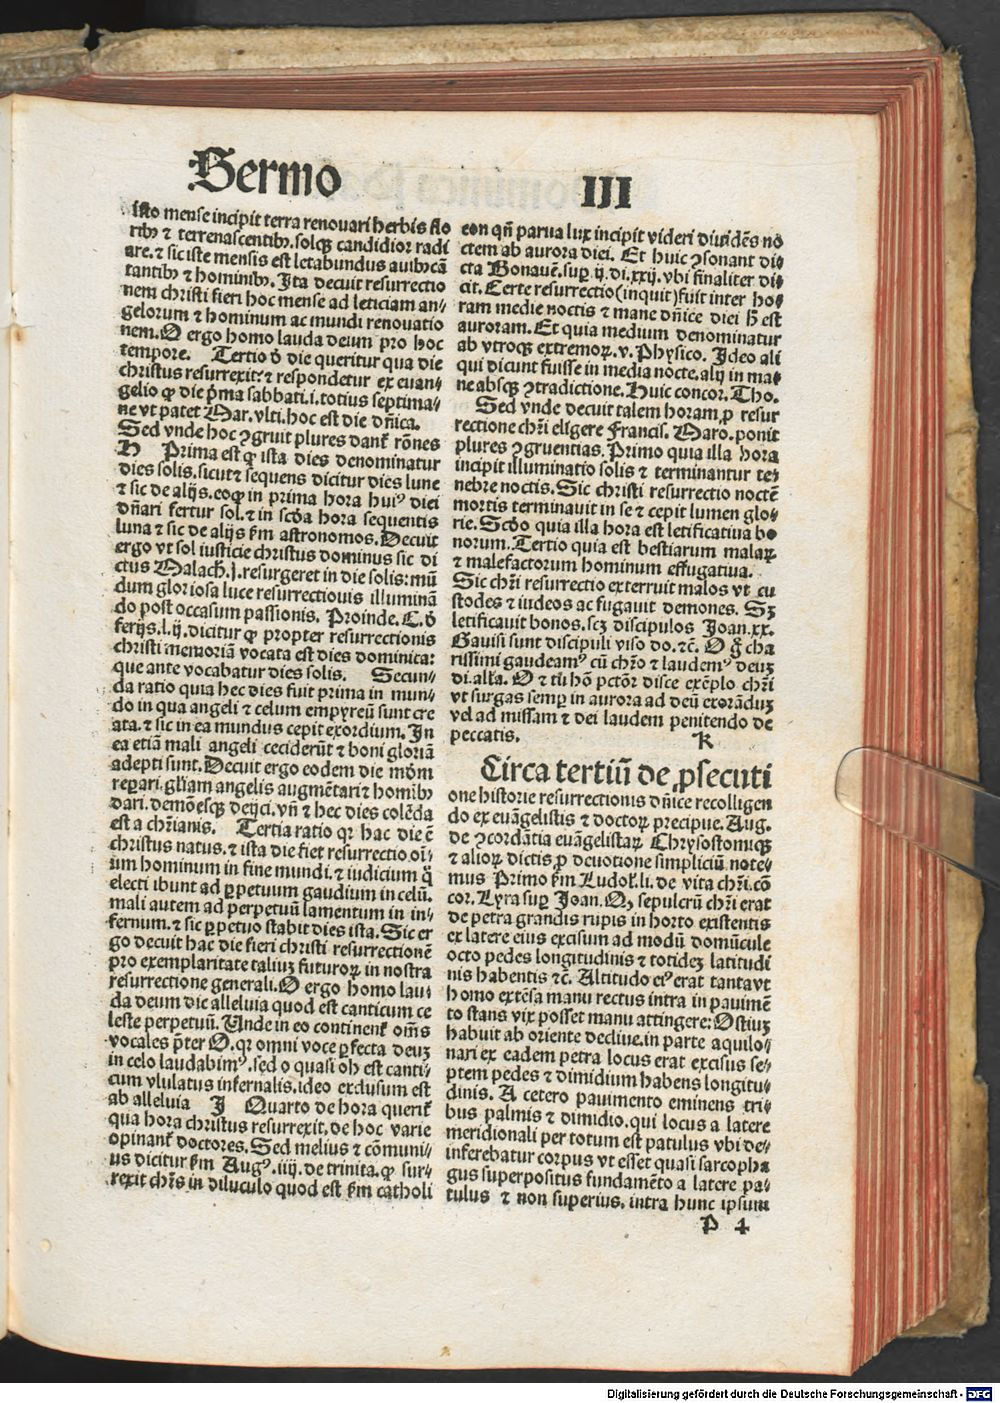 Sermo III
isto mense incipit terra renovari herbis flo
ribꝰ ⁊ terrenascentibꝰ. solqꝫ candidior radi
are. ⁊ sic iste mensis est letabundus auibꝰ cā
tantibꝰ ⁊ hominibꝰ. Ita decuit resurrectio
nem christi fieri hoc mense ad leticiam an⸗
gelorum ⁊ hominum ac mundi renouatio
nem. O ergo homo lauda deum pro hoc
tempore. Tertio ꝟ die queritur qua die
christus resurrexit: ⁊ respondetur ex euan⸗
gelio ꝙ die pͥma sabbati. i. totius septima⸗
ne vt patet Mar. vlti. hoc est die dn̄ica.
Sed vnde hoc ꝯgruit plures dant᷑ rōnes
H Prima est qꝛ ista dies denominatur
dies solis. sicut ⁊ sequens dicitur dies lune
⁊ sic de alijs. eoꝙ in prima hora huiꝰ diei
dn̄ari fertur sol. ⁊ in scd̓a hora sequentis
luna ⁊ sic de alijs ẜm astronomos. Decuit
ergo vt sol iusticie christus dominus sic di
ctus Malach. j. resurgeret in die solis: mū
dum gloriosa luce resurrectiouis illuminā
do post occasum passionis. Proinde. C. ꝟ
ferijs. l. ij. dicitur ꝙ propter resurrectionis
christi memoriā vocata est dies dominica:
que ante vocabatur dies solis. Secun⸗
da ratio quia hec dies fuit prima in mun⸗
do in qua angeli ⁊ celum empyreū sunt cre
ata. ⁊ sic in ea mundus cepit exordium. In
ea etiā mali angeli ceciderūt ⁊ boni gloriā
adepti sunt. Decuit ergo eodem die mūdm
reꝑari. gl̓iam angelis augmētari ⁊ homibꝰ
dari. demōesqꝫ deijci. vn̄ ⁊ hec dies colēda
est a chr̄ianis. Tertia ratio qꝛ hac die ē
christus natus. ⁊ ista die fiet resurrectio oī⸗
um hominum in fine mundi. ⁊ iudicium q̄
electi ibunt ad ꝑpetuum gaudium in celū.
mali autem ad perpetuū lamentum in in⸗
fernum. ⁊ sic ꝑpetuo stabit dies ista. Sic er
go decuit hac die fieri christi resurrectionē
pro exemplaritate taliuꝫ futuroꝝ in nostra
resurrectione generali. O ergo homo lau⸗
da deum dic alleluia quod est canticum ce
leste perpetuū. Unde in eo continent᷑ om̄s
vocales p̄ter O. qꝛ omni voce ꝑfecta deuꝫ
in celo laudabimꝰ. sed o quasi oh est canti⸗
cum vlulatus infernalis. ideo exclusum est
ab alleluia I Quarto de hora querit᷑
qua hora christus resurrexit. de hoc varie
opinant᷑ doctores. Sed melius ⁊ cōmuni⸗
us dicitur ẜm Augꝰ. iiij. de trinita. ꝙ sur⸗
rexit chr̄s in diluculo quod est ẜm catholi
con qn̄ parua lux incipit videri diuidēs no
ctem ab aurora diei. Et huic ꝯsonant di⸗
cta Bonauē. suꝑ ij. di. xxij. vbi finaliter di⸗
cit. Certe resurrectio (inquit) fuit inter ho⸗
ram medie noctis ⁊ mane dn̄ice diei h̄ est
auroram. Et quia medium denominatur
ab vtroqꝫ extremoꝝ. v. Physico. Ideo ali
qui dicunt fuisse in media nocte. alij in ma⸗
ne absqꝫ ꝯtradictione. Huic concor. Tho.
Sed vnde decuit talem horam ꝓ resur
rectione chr̄i eligere Francis. Maro. ponit
plures ꝯgruentias. Primo quia illa hora
incipit illuminatio solis ⁊ terminantur te⸗
nebre noctis. Sic christi resurrectio noctē
mortis terminauit in se ⁊ cepit lumen glo⸗
rie. Scd̓o quia illa hora est letificatiua bo
norum. Tertio quia est bestiarum malaꝝ
⁊ malefactorum hominum effugatiua.
Sic chr̄i resurrectio exterruit malos vt cu
stodes ⁊ iudeos ac fugauit demones. Sꝫ
letificauit bonos. scꝫ discipulos Joan. xx.
Gauisi sunt discipuli viso do. ⁊c̄. O g̊ cha
rissimi gaudeamꝰ cū chr̄o ⁊ laudemꝰ deuꝫ
di. alła. O ⁊ tu hō pctōr disce exēplo chr̄i
vt surgas semꝑ in aurora ad deū exorāduꝫ
vel ad missam ⁊ dei laudem penitendo de
peccatis. K
Circa tertiū de ꝓsecuti
one historie resurrectionis dn̄ice recolligen
do ex euāgelistis ⁊ doctoꝝ precipue. Aug.
de ꝯcordātia euāgelistaꝝ Chrysostomiqꝫ
⁊ alioꝝ dictis ꝓ deuotione simpliciū note⸗
mus Primo ẜm Ludol. li. de vita chr̄i. cō
cor. Lyra suꝑ Joan. Qꝫ sepulcrū chr̄i erat
de petra grandis rupis in horto existentis
ex latere eius excisum ad modū domūcule
octo pedes longitudinis ⁊ totideꝫ latitudi
nis habentis ⁊c̄. Altitudo eiꝰ erat tantavt
homo extēsa manu rectus intra in pauimē
to stans vix posset manu attingere: Ostiuꝫ
habuit ab oriente decliue. in parte aquilo⸗
nari ex eadem petra locus erat excisus se⸗
ptem pedes ⁊ dimidium habens longitu⸗
dinis. A cetero pauimento eminens tri⸗
bus palmis ⁊ dimidio. qui locus a latere
meridionali per totum est patulus vbi de⸗
inferebatur corpus vt esset quasi sarcopha
gus superpositus fundamēto a latere pa⸗
tulus ⁊ non superius. intra hunc ipsum
P 4
Digitalisierung gefördert durch die Deutsche Forschungsgemeinschaft - DFG